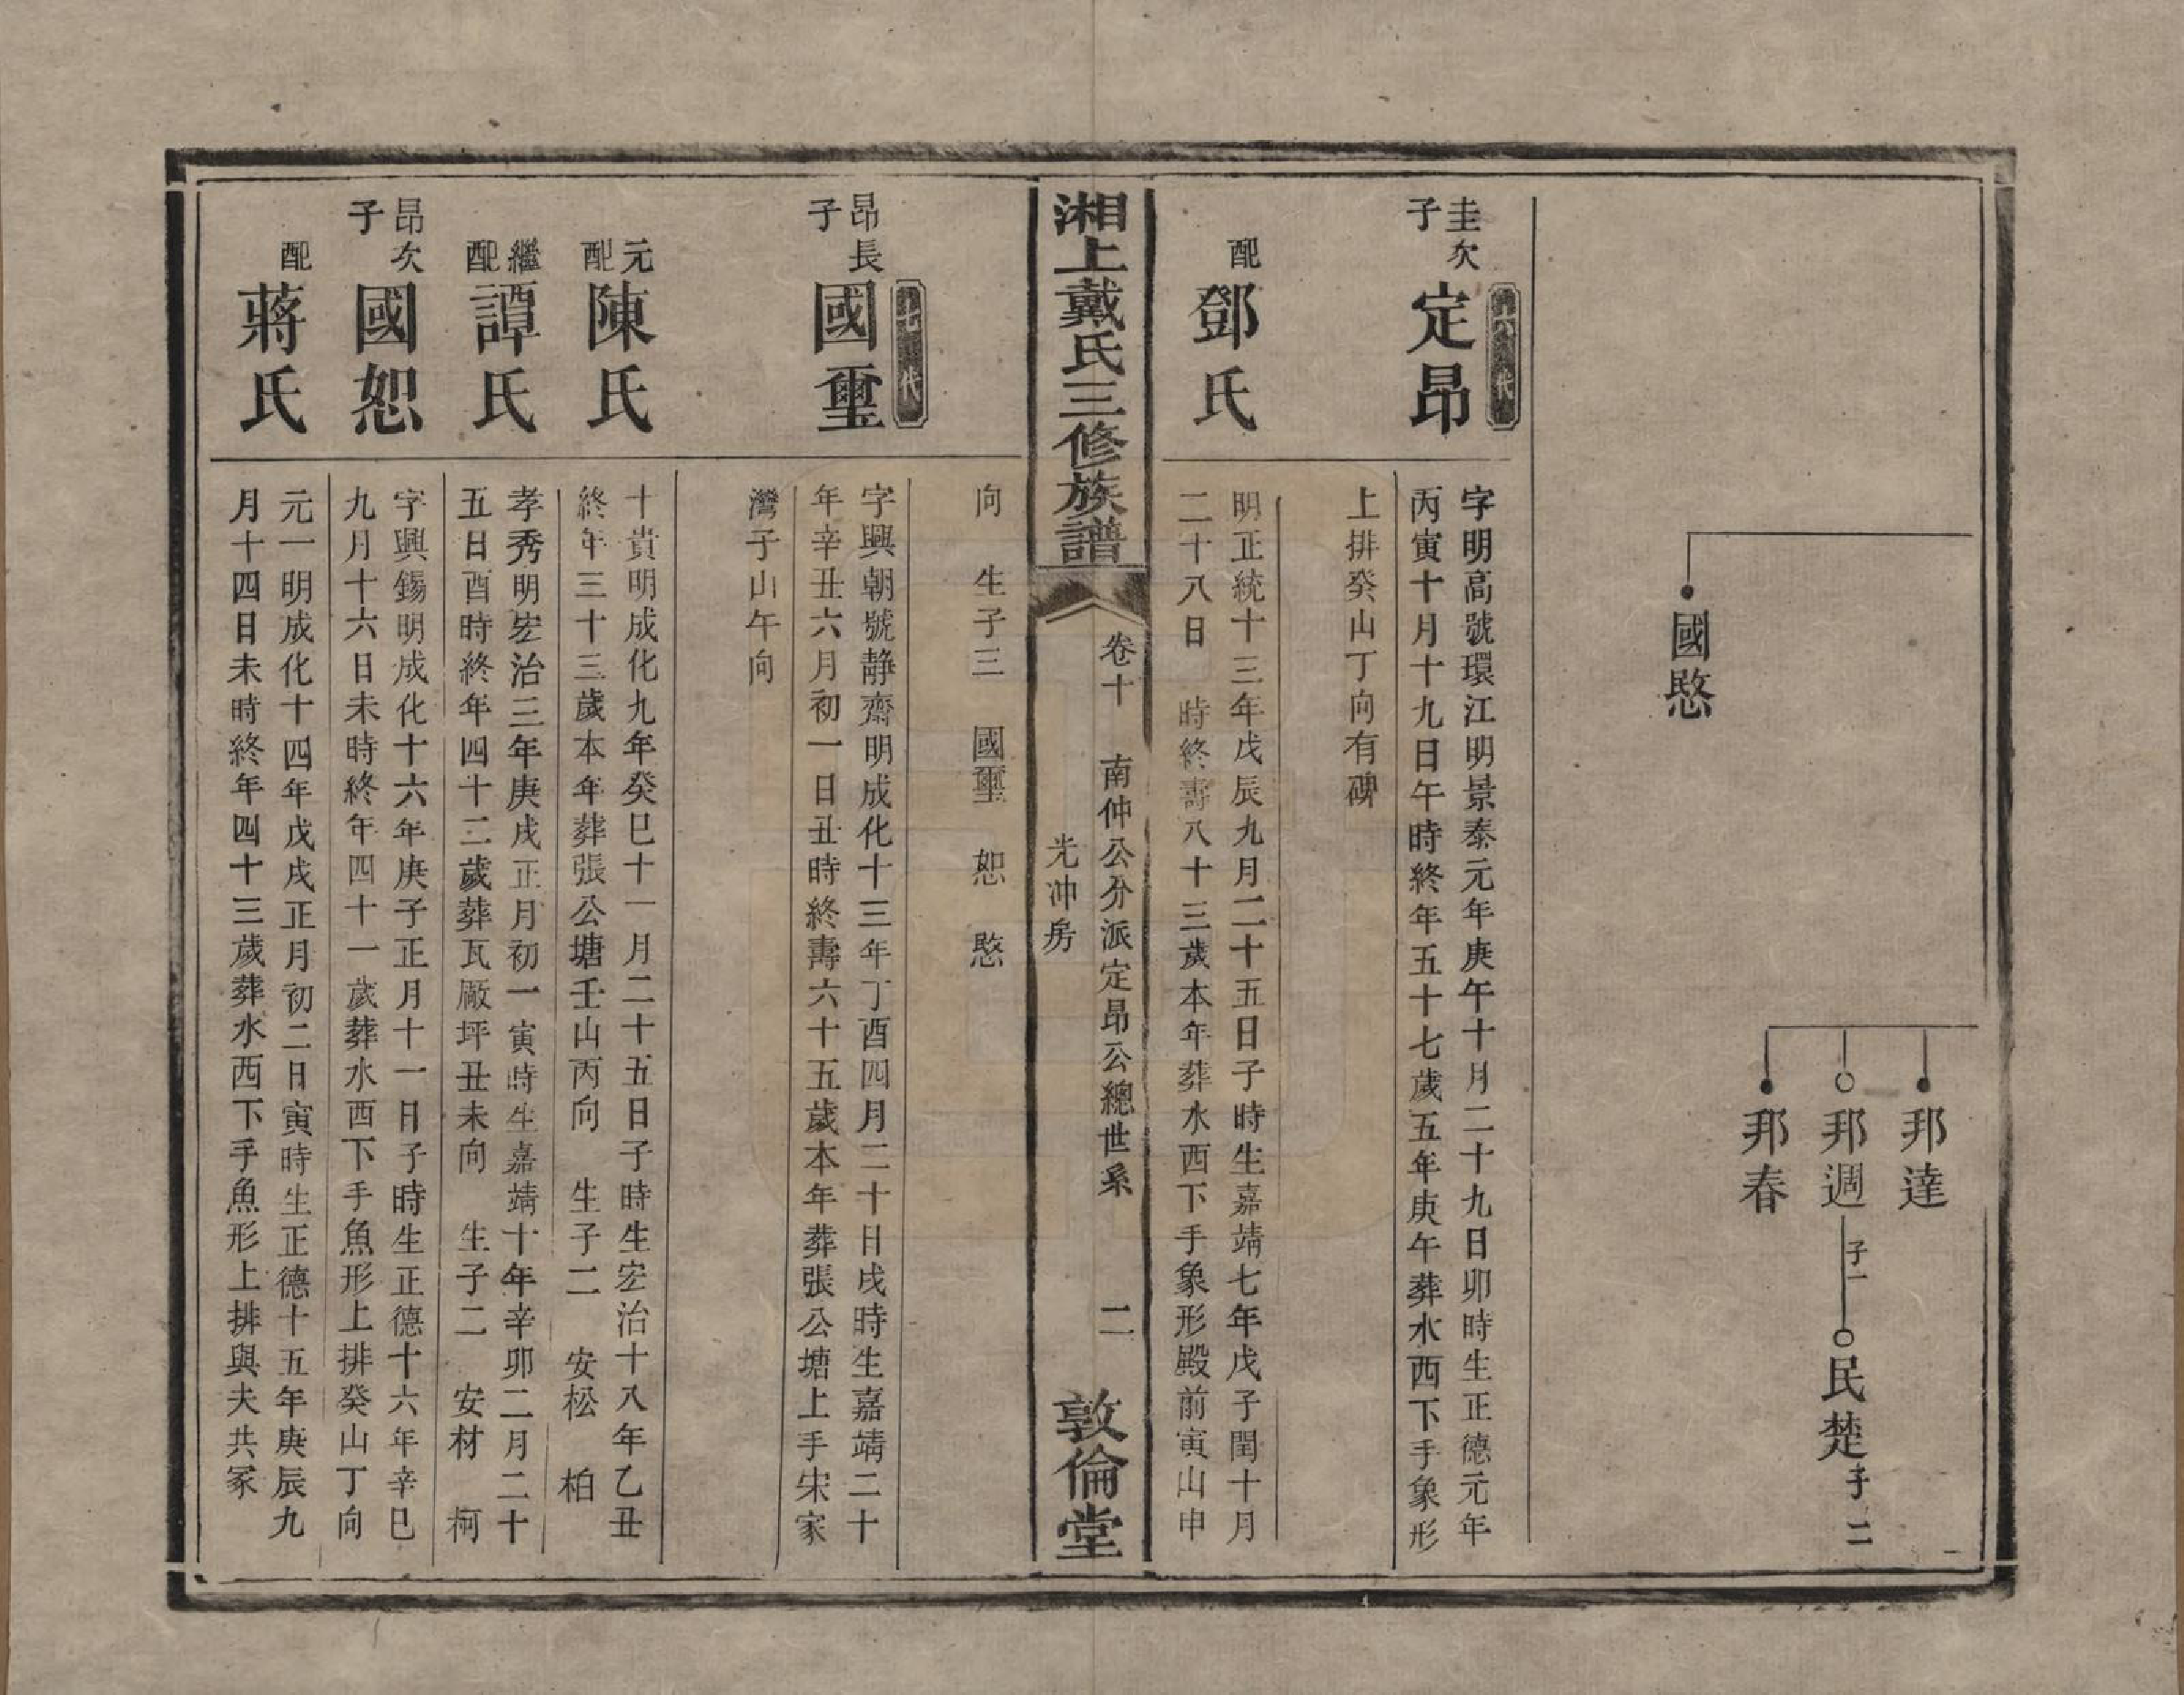 國愍
邦達
邦週
子一
民楚
子二
邦春
代
圭次
子
定昂
字明高號環江明景泰元年庚午十月二十九日卯時生正德元年
丙寅十月十九日午時終年五十七歲五年庚午葬水西下手象形
上排癸山丁向有碑
配
鄧氏
明正統十三年戊辰九月二十五日子時生嘉靖七年戊子閏十月
二十八日 時終壽八十三歲本年葬水西下手象形殿前寅山申
湘上戴氏三修族譜
卷十 南仲公分派定昂公總世系 二
光冲房
敦倫堂
向 生子三 國璽 恕 愍
七代
昂長
子
國璽
字興朝號静齋明成化十三年丁酉四月二十日戌時生嘉靖二十
年辛丑六月初一日丑時終壽六十五歲本年葬張公塘上手宋家
灣子山午向
元
配
陳氏
十貴明成化九年癸巳十一月二十五日子時生宏治十八年乙丑
終年三十三歲本年葬張公塘壬山丙向 生子二 安松 柏
繼
配
譚氏
孝秀明宏治三年庚戌正月初一寅時生嘉靖十年辛卯二月二十
五日酉時終年四十二歲葬瓦廠坪丑未向 生子二 安材 柯
昂次
子
國恕
字興錫明成化十六年庚子正月十一日子時生正德十六年辛巳
九月十六日未時終年四十一歲葬水西下手魚形上排癸山丁向
配
蔣氏
元一明成化十四年戊戌正月初二日寅時生正德十五年庚辰九
月十四日未時終年四十三歲葬水西下手魚形上排與夫共冢